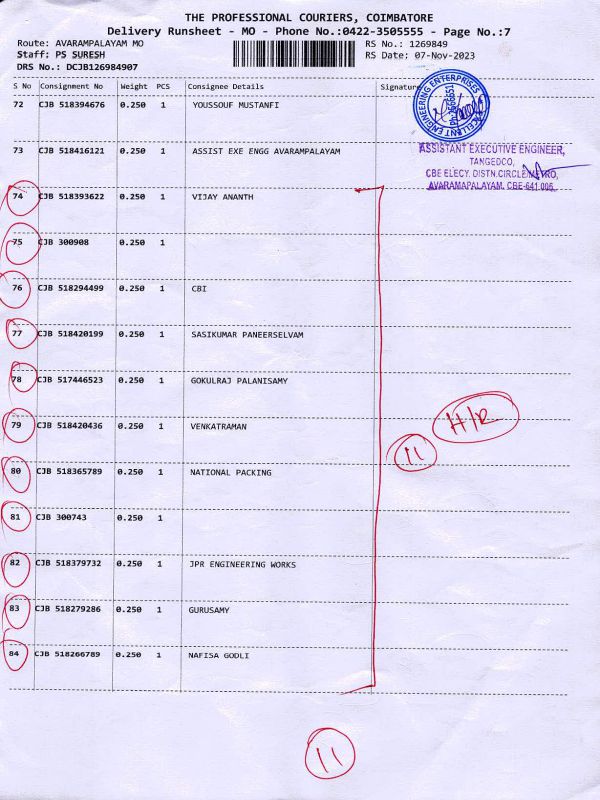 THE PROFESSIONAL COURIERS, COIMBATORE
Delivery Runsheet - MO - Phone No.:0422-3505555 - Page No.:7
Route: AVARAMPALAYAM MO RS No.: 1269849
Staff: PS SURESH RS Date: 07-Nov-2023
DRS No.: DCJB126984907
S No Consignment No Weight PCS Consignee Details Signature
72 CJB 518394676 0.250 1 YOUSSOUF MUSTANFI
73 CJB 518416121 0.250 1 ASSIST EXE ENGG AVARAMPALAYAM
ASSISTANT EXECUTIVE ENGINEER,
TANGEDCO,
CBE ELECY. DISTN.CIRCLE/METRO,
AVARAMAPALAYAM, CBE-641 006.
74 CJB 518393622 0.250 1 VIJAY ANANTH
75 CJB 300908 0.250 1
76 CJB 518294499 0.250 1 CBI
77 CJB 518420199 0.250 1 SASIKUMAR PANEERSELVAM
78 CJB 517446523 0.250 1 GOKULRAJ PALANISAMY
79 CJB 518420436 0.250 1 VENKATRAMAN
H/R
11
80 CJB 518365789 0.250 1 NATIONAL PACKING
81 CJB 300743 0.250 1
82 CJB 518379732 0.250 1 JPR ENGINEERING WORKS
83 CJB 518279286 0.250 1 GURUSAMY
84 CJB 518266789 0.250 1 NAFISA GODLI
11